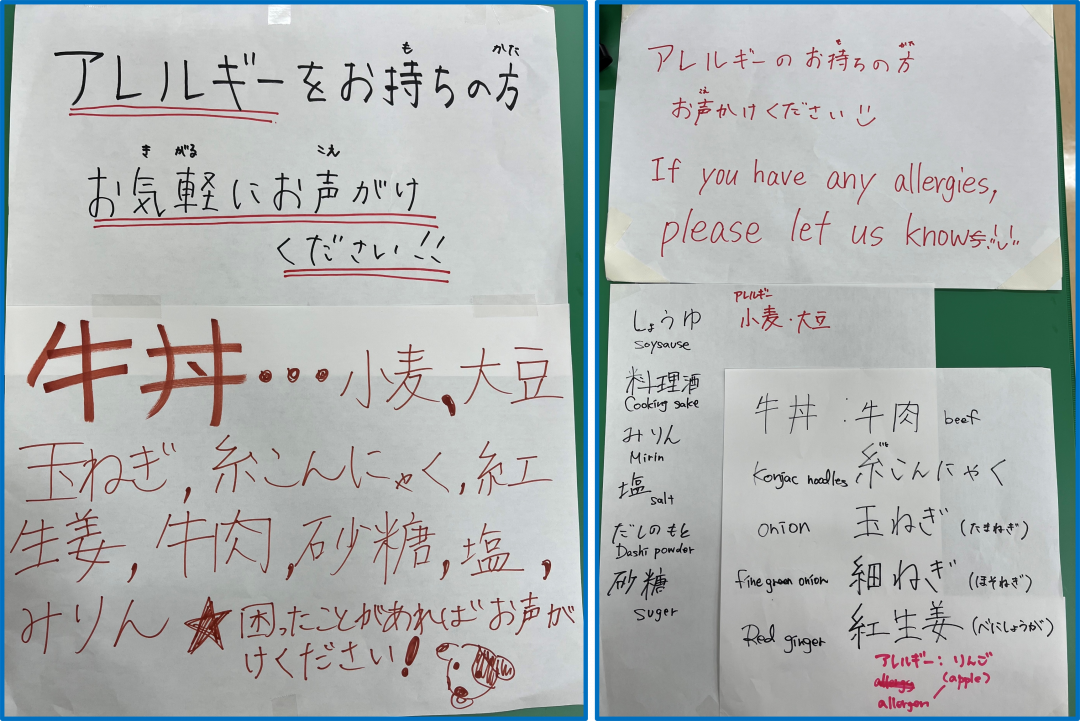 アレルギーをお持ちの方
も
かた
お気軽にお声がけ
き がる
こえ
ください!!
牛丼・・・小麦,大豆
玉ねぎ,糸こんにゃく,紅
生姜,牛肉,砂糖,塩,
みりん★困ったことがあればお声が
けください!
アレルギーのお持ちの方
も
かた
お声かけください
こえ
If you have any allergies,
please let us know
しょうゆ
soysause
アレルギー
小麦・大豆
料理酒
Cooking sake
みりん
Mirin
塩
salt
だしのもと
Dashi powder
砂糖
suger
牛丼:牛肉 beef
Konjac noodles 糸こんにゃく
いと
onion 玉ねぎ(たまねぎ)
fine green onion 細ねぎ(ほそねぎ)
Red ginger 紅生姜(べにしょうが)
アレルギー:りんご
allergen (apple)